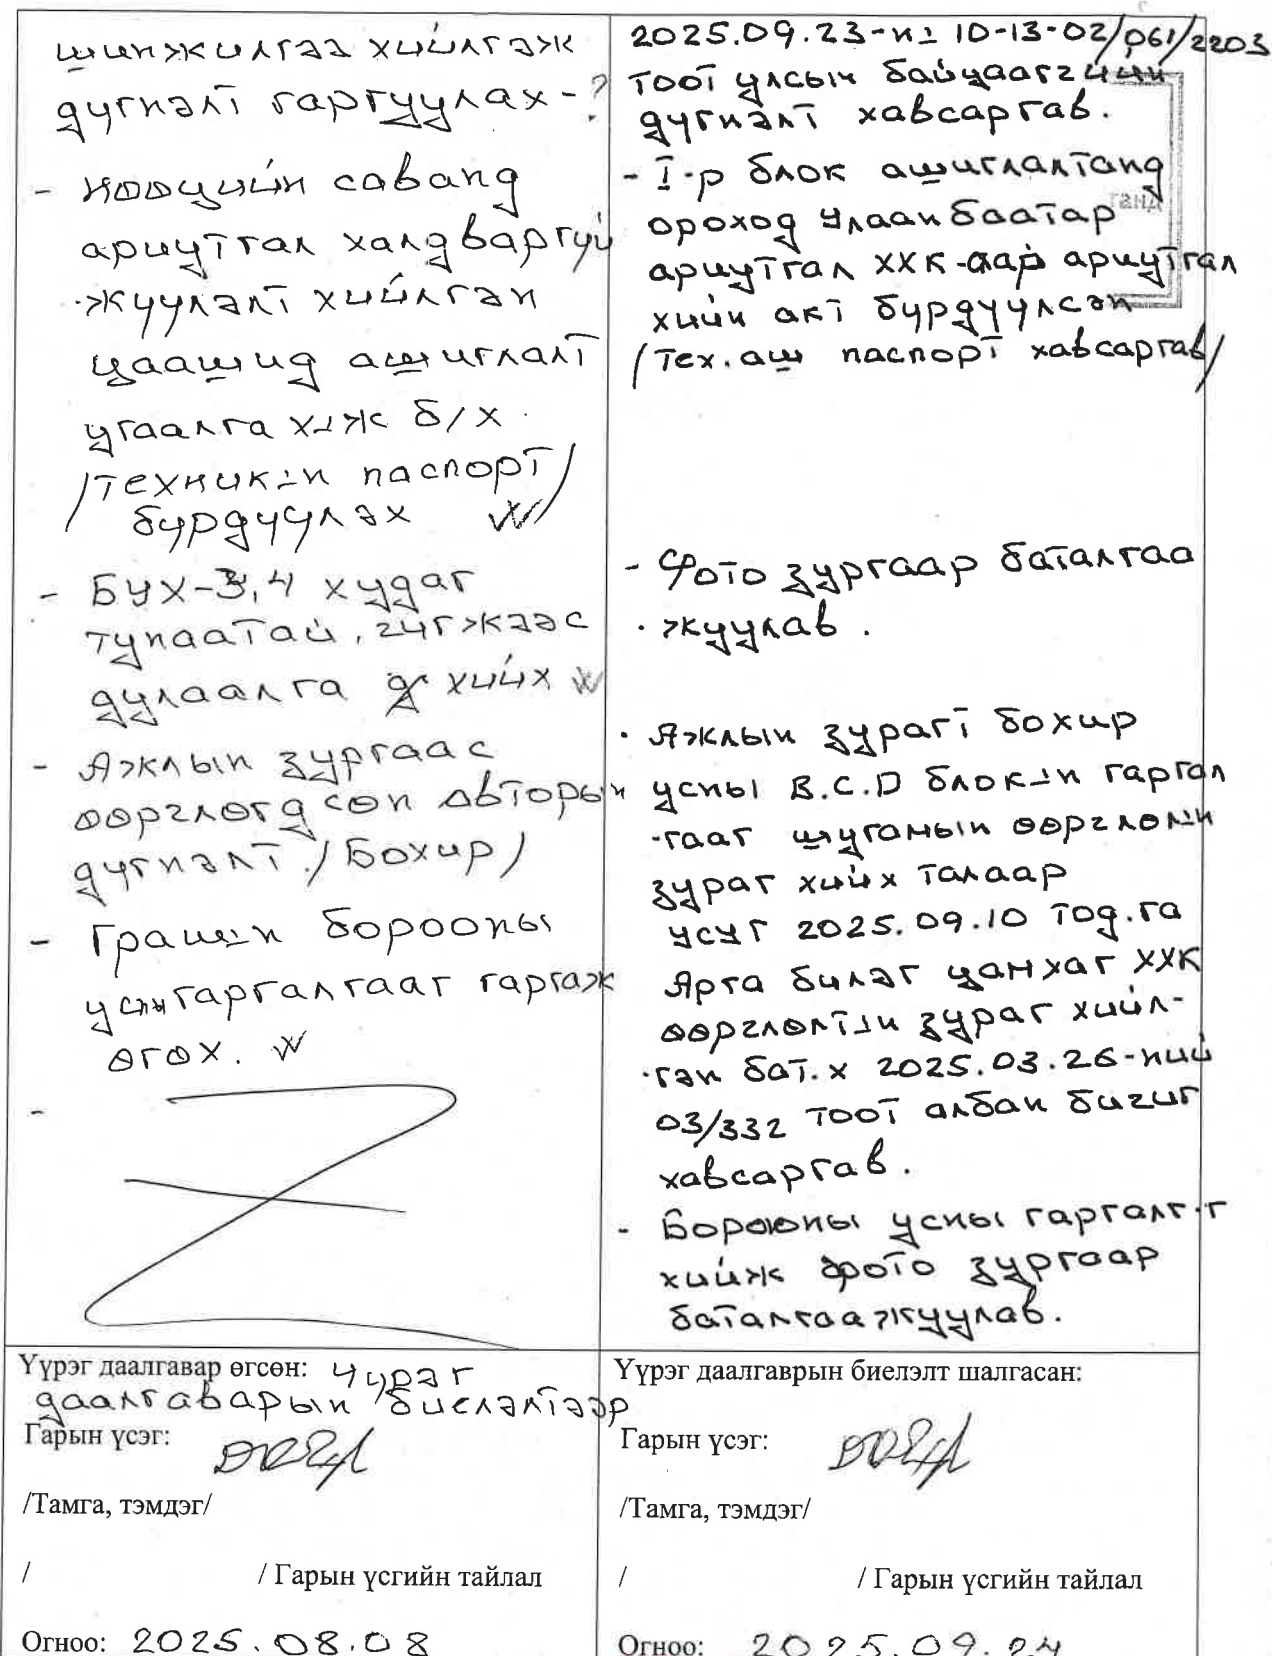 шинжилгээ хийлгэж
дүгнэлт гаргуулах-?
- Нөөцийн саванд
ариутгал халдваргүй
жүүлэлт хийлгэн
цаашид ашиглалт
угаалга хэж б/х.
/Техникын паспорт/
бүрдүүлэх
- БУХ-3,4 худаг
тунаатай, гүгжээс
дулаалга хийх
- Ажлын зургаас
өөрчлөгдсөн Авторын
дүгнэлт./Бохир/
- Граншн борооны
усны гаргалгааг гаргаж
өгөх.
-
2025.09.23-ны 10-13-02/061/2203
тоот улсын байцаагчийн
дүгнэлт хавсаргав.
- I-р блок ашиглалтанд
ороход Улаанбаатар
ариутгал ХХК-аар ариутгал
хийн акт бүрдүүлсэн
/Тех.аш паспорт хавсаргав/
- Фото зургаар баталгаа
жуулав.
- Ажлын зурагт бохир
усны B.C.D блокын гаргал
гааг шугамын өөрчлөлтийн
зураг хийх талаар
усуг 2025.09.10 тод.га
Арга билэг цамхаг ХХК
өөрчлөлтын зураг хийл-
гэн бат.х 2025.03.26-ний
03/332 тоот албан бичиг
хавсаргав.
- Борооны усны гаргалг.г
хийж фото зургаар
баталгаажуулав.
Үүрэг даалгавар өгсөн: Үүрэг
даалгаварын биелэлтээр
Гарын үсэг:
/Тамга, тэмдэг/
/ / Гарын үсгийн тайлал
Огноо: 2025.08.08
Үүрэг даалгаврын биелэлт шалгасан:
Гарын үсэг:
/Тамга, тэмдэг/
/ / Гарын үсгийн тайлал
Огноо: 2025.09.24